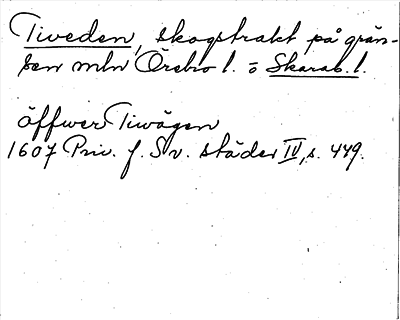 Tiveden, skogstrakt på grän-
sen mln Örebro l. o Skarab. l.
öffwer Tiwägen
1607 Priv. f. Sv. städer IV, s. 449.